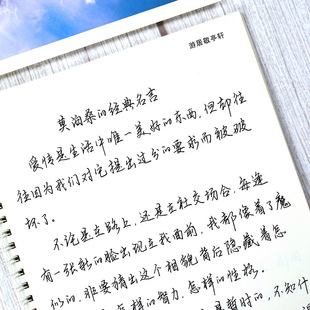 游居敬亭轩
莫泊桑的经典名言
爱情是生活中唯一美好的东西,但却往
往因为我们对它提出过分的要求而被破
坏了。
不论是在路上,还是在社交场合,每逢
有一张新的脸出现在我面前,我都像着了魔
似的,非要猜出这个相貌背后隐藏着怎
怎样的智力,怎样的性格。
是暂时的,不知什